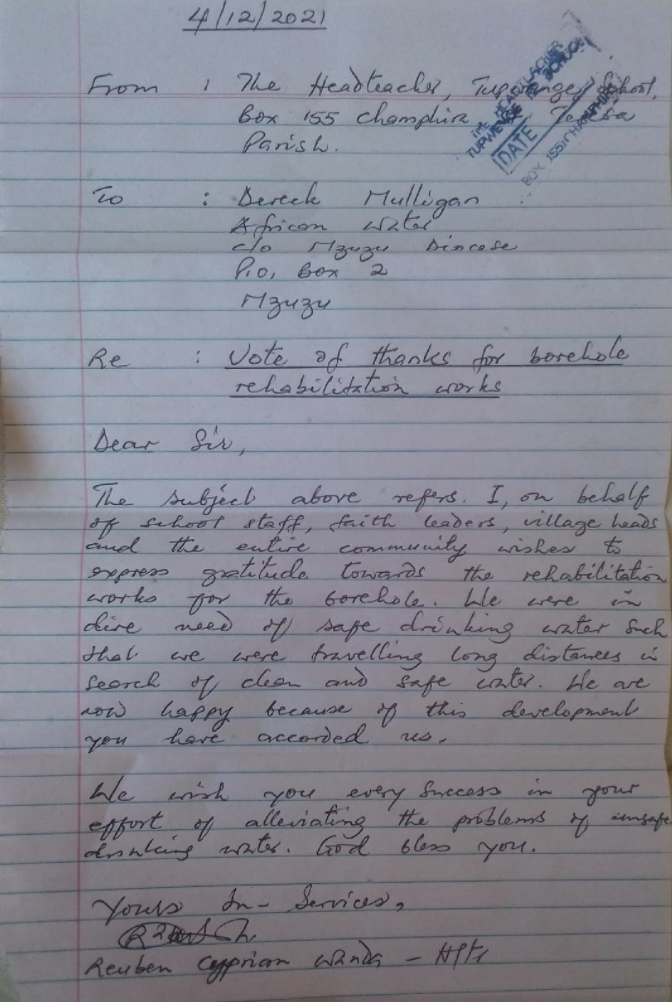 4/12/2021
From : The Headteacher, Tupwenge School,
Box 155 Champhira
Parish.
THE HEADTEACHER
TUPWENGE SCHOOL
DATE
BOX 155, CHAMPHIRA
To : Dereck Mulligan
African Water
c/o Mzuzu Diocese
P.O, Box 2
Mzuzu
Re : Vote of thanks for borehole
rehabilitation works
Dear Sir,
The subject above refers. I, on behalf
of school staff, faith leaders, village heads
and the entire community wishes to
express gratitude towards the rehabilitation
works for the borehole. We were in
dire need of safe drinking water such
that we were travelling long distances in
search of clean and safe water. We are
now happy because of this development
you have accorded us.
We wish you every success in your
effort of alleviating the problems of unsafe
drinking water. God bless you.
Yours In-Services,
Reuben Cyprian